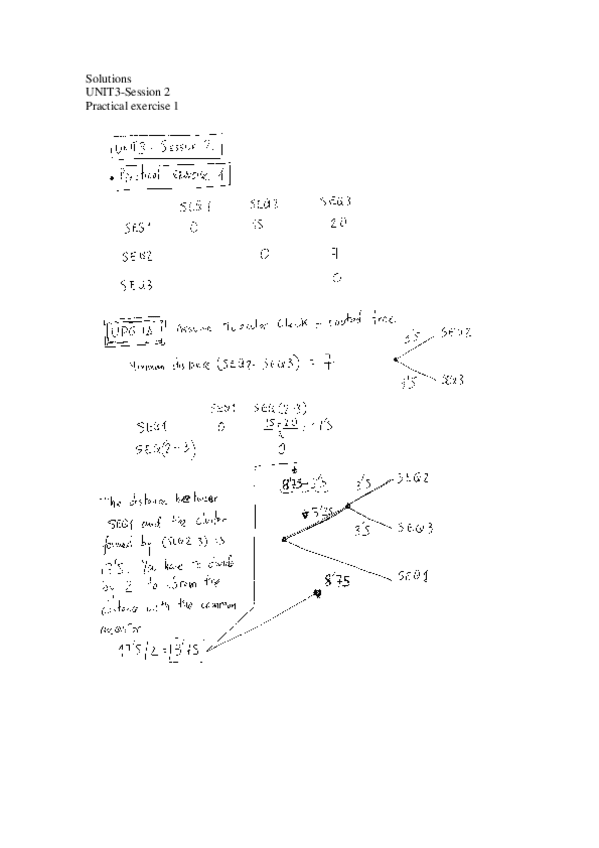 Solutions
UNIT3-Session 2
Practical exercise 1
UNIT3 - Session 2
• Practical exercise 1
SEQ1 SEQ2 SEQ3
SEQ1 0 15 20
SEQ2 0 7
SEQ3 0
UPGMA Assume Molecular Clock rooted tree
Minimum distance (SEQ2- SEQ3) = 7
3'5 SEQ2
3'5 SEQ3
SEQ1 SEQ(2-3)
SEQ1 0 15+20/2 = 17'5
SEQ(2-3) 0
8'75-3'5
5'25
3'5 SEQ2
3'5 SEQ3
SEQ1
8'75
The distance between
SEQ1 and the cluster
formed by (SEQ2-3) is
17'5. You have to divide
by 2 to obtain the
distance with the common
ancestor
17'5/2 = 8'75